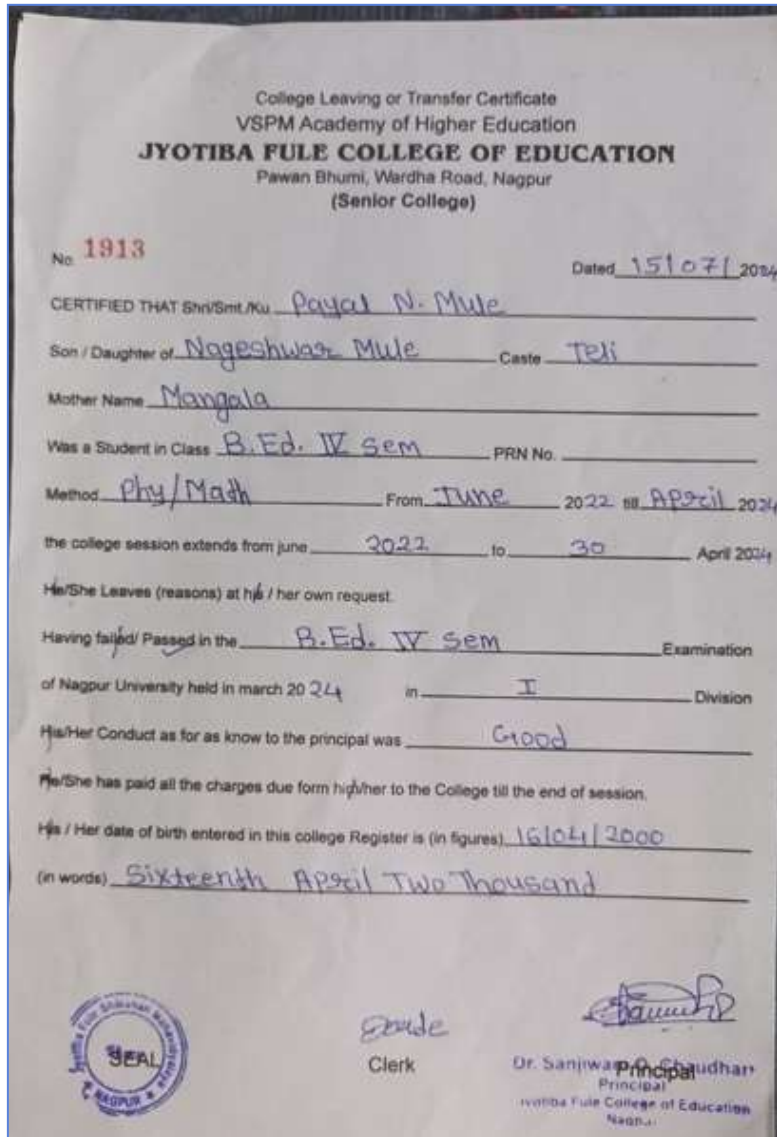 College Leaving or Transfer Certificate
VSPM Academy of Higher Education
JYOTIBA FULE COLLEGE OF EDUCATION
Pawan Bhumi, Wardha Road, Nagpur
(Senior College)
No. 1913
Dated 15/07/2024
CERTIFIED THAT Shri/Smt./Ku. Payal N. Mule
Son / Daughter of Nageshwar Mule Caste Teli
Mother Name Mangala
Was a Student in Class B.Ed. IV Sem PRN No.
Method Phy/Math From June 2022 till April 2024
the college session extends from june 2022 to 30 April 2024
He/She Leaves (reasons) at his / her own request.
Having failed/ Passed in the B.Ed. IV Sem Examination
of Nagpur University held in march 2024 in I Division
His/Her Conduct as for as know to the principal was Good
He/She has paid all the charges due form his/her to the College till the end of session.
His / Her date of birth entered in this college Register is (in figures) 16/04/2000
(in words) Sixteenth April Two Thousand
SEAL
NAGPUR
Clerk
Principal
Dr. Sanjiwani
Principal
Jyotiba Fule College of Education
Nagpur